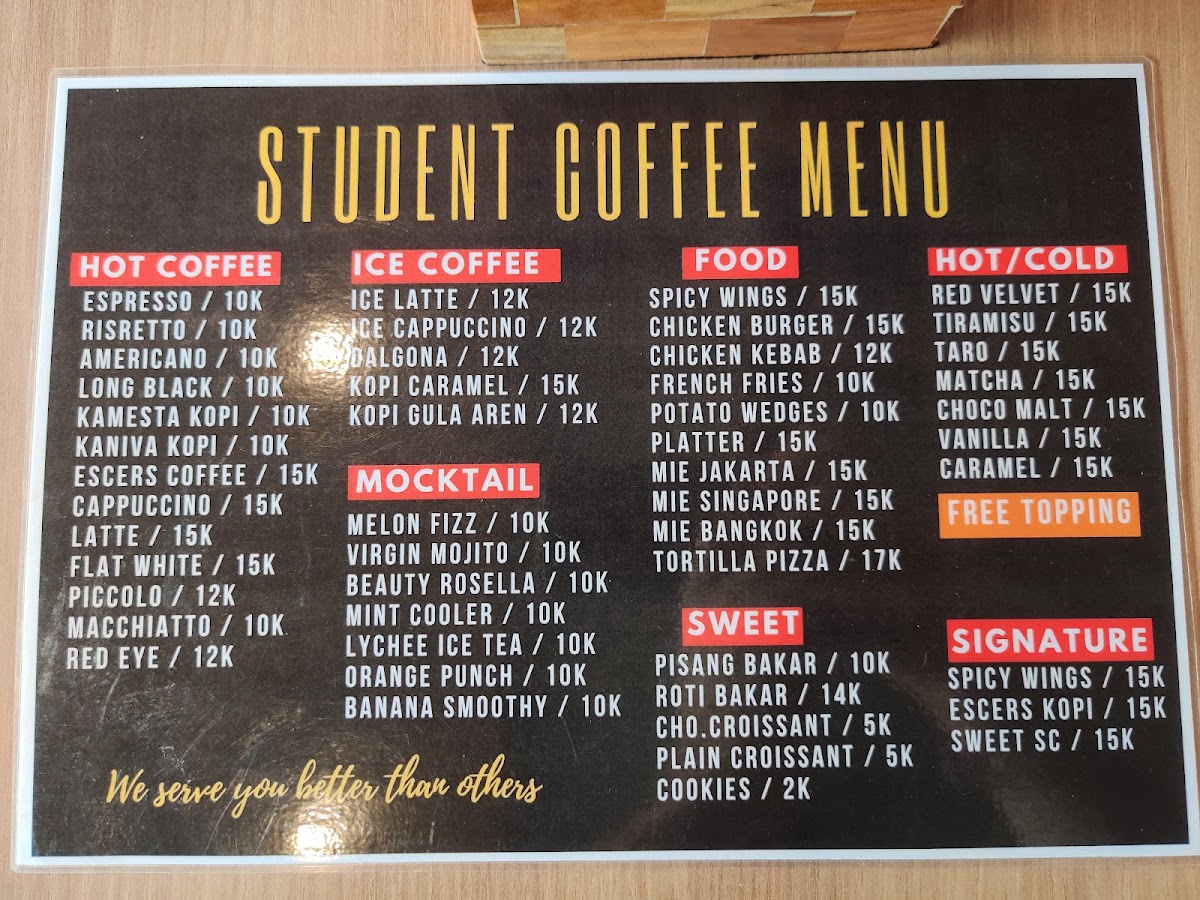 STUDENT COFFEE MENU
HOT COFFEE
ESPRESSO / 10K
RISRETTO / 10K
AMERICANO / 10K
LONG BLACK / 10K
KAMESTA KOPI / 10K
KANIVA KOPI / 10K
ESCERS COFFEE / 15K
CAPPUCCINO / 15K
LATTE / 15K
FLAT WHITE / 15K
PICCOLO / 12K
MACCHIATTO / 10K
RED EYE / 12K
ICE COFFEE
ICE LATTE / 12K
ICE CAPPUCCINO / 12K
DALGONA / 12K
KOPI CARAMEL / 15K
KOPI GULA AREN / 12K
MOCKTAIL
MELON FIZZ / 10K
VIRGIN MOJITO / 10K
BEAUTY ROSELLA / 10K
MINT COOLER / 10K
LYCHEE ICE TEA / 10K
ORANGE PUNCH / 10K
BANANA SMOOTHY / 10K
FOOD
SPICY WINGS / 15K
CHICKEN BURGER / 15K
CHICKEN KEBAB / 12K
FRENCH FRIES / 10K
POTATO WEDGES / 10K
PLATTER / 15K
MIE JAKARTA / 15K
MIE SINGAPORE / 15K
MIE BANGKOK / 15K
TORTILLA PIZZA / 17K
SWEET
PISANG BAKAR / 10K
ROTI BAKAR / 14K
CHO.CROISSANT / 5K
PLAIN CROISSANT / 5K
COOKIES / 2K
HOT/COLD
RED VELVET / 15K
TIRAMISU / 15K
TARO / 15K
MATCHA / 15K
CHOCO MALT / 15K
VANILLA / 15K
CARAMEL / 15K
FREE TOPPING
SIGNATURE
SPICY WINGS / 15K
ESCERS KOPI / 15K
SWEET SC / 15K
We serve you better than others